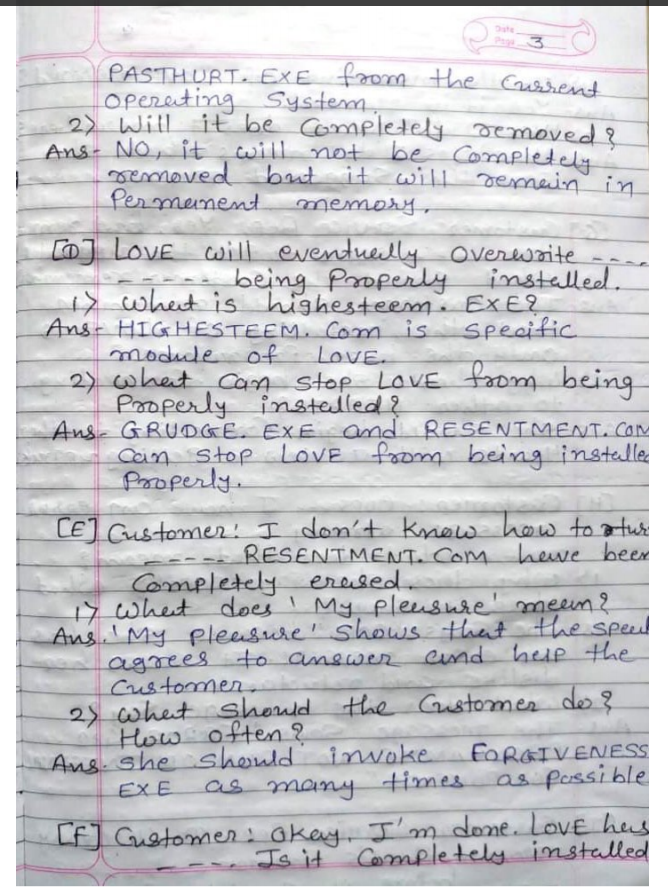 Date
Page 3
PASTHURT. EXE from the current
operating System.
2) Will it be Completely removed?
Ans- NO, it will not be Completely
removed but it will remain in
Permanent memory.
[D] LOVE will eventually overwrite ----
----- being Properly installed.
1) What is highesteem. EXE?
Ans- HIGHESTEEM. Com is specific
module of LOVE.
2) What can stop LOVE from being
Properly installed?
Ans- GRUDGE. EXE and RESENTMENT. COM
Can stop LOVE from being installe
Properly.
[E] Customer: I don't know how to tur
----- RESENTMENT. COM have been
Completely erased.
1) What does 'My pleasure' mean?
Ans. 'My pleasure' shows that the speak
agrees to answer and help the
Customer.
2) What should the Customer do?
How often?
Ans. She should invoke FORGIVENESS
EXE as many times as possible
[F] Customer: Okay, I'm done. LOVE has
----. Is it Completely installed